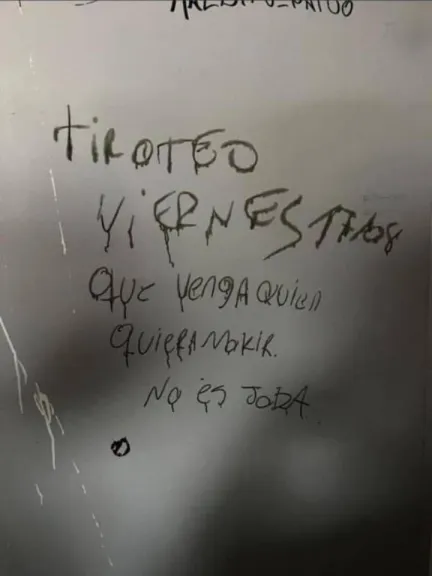 TIROTEO
ViERNES 17/08
QUE VENGA QUIEN
QUIERA MORIR.
NO ES JODA